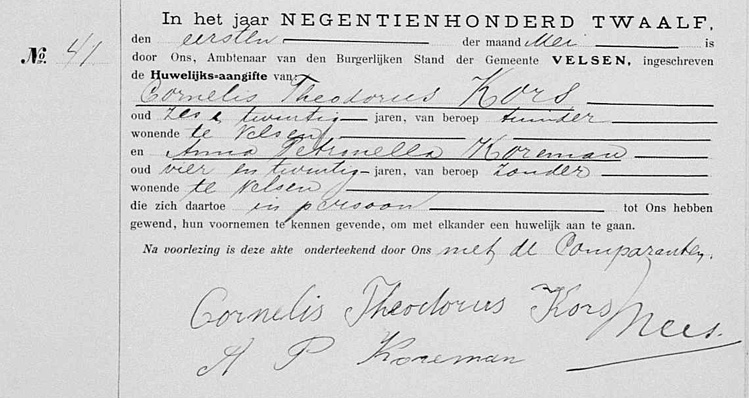 In het jaar NEGENTIENHONDERD TWAALF,
No. 41
den eersten der maand Mei is
door Ons, Ambtenaar van den Burgerlijken Stand der Gemeente VELSEN, ingeschreven
de Huwelijks=aangifte van:
Cornelis Theodorus Kors
oud zes e twintig jaren, van beroep tuinder
wonende te Velsen
en Anna Petronella Koreman
oud vier en twintig jaren, van beroep zonder
wonende te Velsen
die zich daartoe in persoon tot Ons hebben
gewend, hun voornemen te kennen gevende, om met elkander een huwelijk aan te gaan.
Na voorlezing is deze akte onderteekend door Ons met de Comparanten.
Cornelis Theodorus Kors
Mees.
A P Koreman